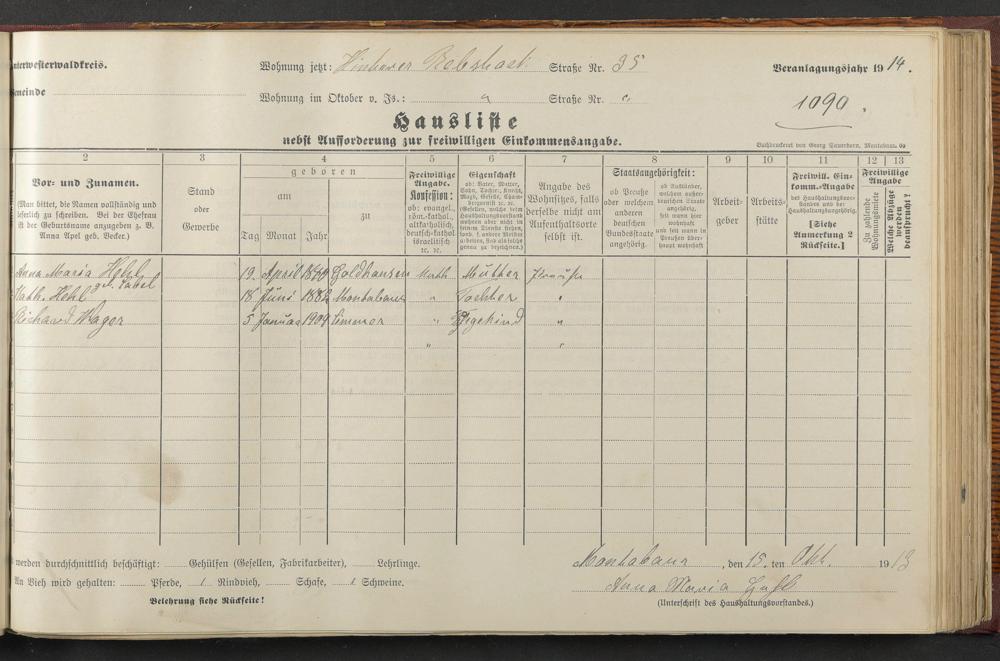 nterwesterwaldkreis.
Wohnung jetzt: Hinterer Rebstock Straße Nr. 35
Veranlagungsjahr 1914.
emeinde
Wohnung im Oktober v. Js.: " Straße Nr. "
1090.
Hausliste
nebst Aufforderung zur freiwilligen Einkommensangabe.
Buchdruckerei von Georg Sauerborn, Montabaur.
2 3 4 5 6 7 8 9 10 11 12 13
Vor- und Zunamen.
(Man bittet, die Namen vollständig und
leserlich zu schreiben. Bei der Ehefrau
ist der Geburtsname anzugeben z. B.
Anna Apel geb. Becker.)
Stand
oder
Gewerbe
geboren
am
zu
Tag Monat Jahr
Freiwillige
Angabe.
Konfession:
ob: evangel.,
röm.-kathol.,
altkatholisch,
deutsch-kathol
israelitisch
ec. ec.
Eigenschaft
ob: Vater, Mutter,
Sohn, Tochter, Knecht,
Magd, Geselle, Cham-
bregarnist ec. ec.
(Gesellen, welche beim
Haushaltungsvorstand
wohnen aber nicht in
seinem Dienste stehen,
und b. andere Meister
arbeiten, sind als solche
genau zu bezeichnen.)
Angabe des
Wohnsitzes, falls
derselbe nicht am
Aufenthaltsorte
selbst ist.
Staatsangehörigkeit:
ob Preuße
oder welchem
anderen
deutschen
Bundesstaate
angehörig.
ob Ausländer,
welchem außer-
deutschen Staate
angehörig,
seit wann hier
wohnhaft
und seit wann in
Preußen über-
haupt wohnhaft
Arbeit-
geber
Arbeits-
stätte
Freiwill. Ein-
komm.-Angabe
der Haushaltungsvor-
standes und der
Haushaltungsangehörig.
[Siehe
Anmerkung 2
Rückseite.]
Freiwillige
Angabe
Zu zahlende
Wohnungsmiete
Welche Abzüge
werden
beansprucht?
Anna Maria Hehl 19. April Goldhausen Kath. Mutter Preuße
geb. Sabel
Kath. Hehl 18 Juni 1882 Montabaur " Tochter "
Richard Wager 5 Januar 1909 " Pflegekind "
" "
werden durchschnittlich beschäftigt: Gehülfen (Gesellen, Fabrikarbeiter), Lehrlinge.
Montabaur, den 15. ten Okt. 1913
An Vieh wird gehalten: Pferde, 1 Rindvieh, Schafe, 1 Schweine.
Anna Maria Hehl
Belehrung siehe Rückseite!
(Unterschrift des Haushaltungsvorstandes.)